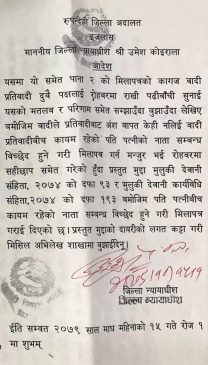 रुपन्देही जिल्ला अदालत
इजलास
माननीय जिल्ला न्यायाधीश श्री उमेश कोइराला
आदेश
यसमा यो समेत पाना २ को मिलापत्रको कागज वादी
प्रतिवादी दुबै पक्षलाई रोहबरमा राखी पढीवाँची सुनाई
यसको मतलव र परिणाम समेत सम्झाउँदा बुझाउँदा लेखिए
बमोजिम वादीले प्रतिवादीबाट अंश वापत केही नलिई वादी
प्रतिवादीबीच कायम रहेको पति पत्नीको नाता सम्बन्ध
विच्छेद हुने गरी मिलापत्र गर्न मञ्जुर भई रोहबरमा
सहीछाप समेत गरेको हुँदा प्रस्तुत मुद्दा मुलुकी देवानी
संहिता, २०७४ को दफा ९३ र मुलुकी देवानी कार्यविधि
संहिता,२०७४ को दफा १९३ बमोजिम पति पत्नीबीच
कायम रहेको नाता सम्बन्ध विच्छेद हुने गरी मिलापत्र
गराई दिएको छ। प्रस्तुत मुद्दाको दायरीको लगत कट्टा गरी
मिसिल अभिलेख शाखामा बुझाईदिनू।
जिल्ला न्यायाधीश
जिल्ला न्यायाधीश
ईति सम्वत २०७९ साल माघ महिनाको १५ गते रोज १
मा शुभम्